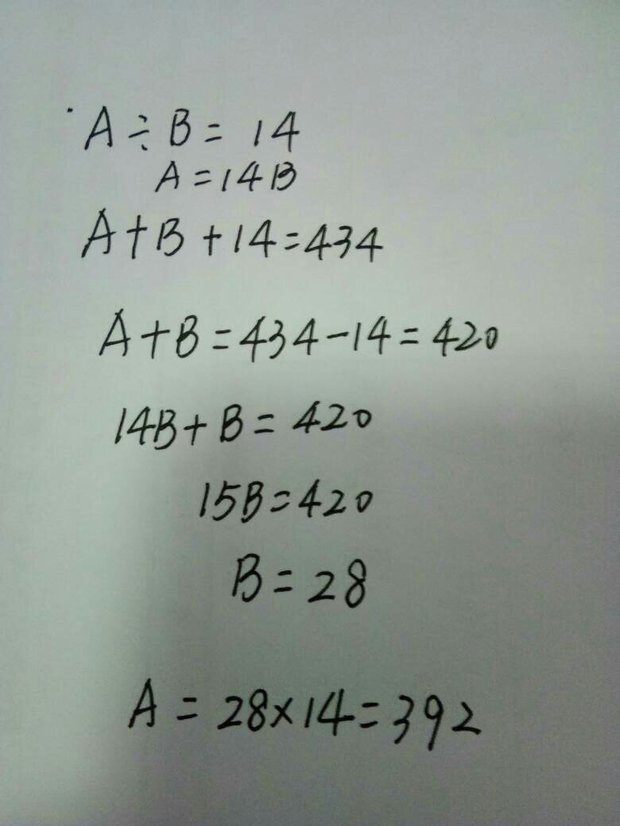 A÷B=14
A=14B
A+B+14=434
A+B=434-14=420
14B+B=420
15B=420
B=28
A=28×14=392